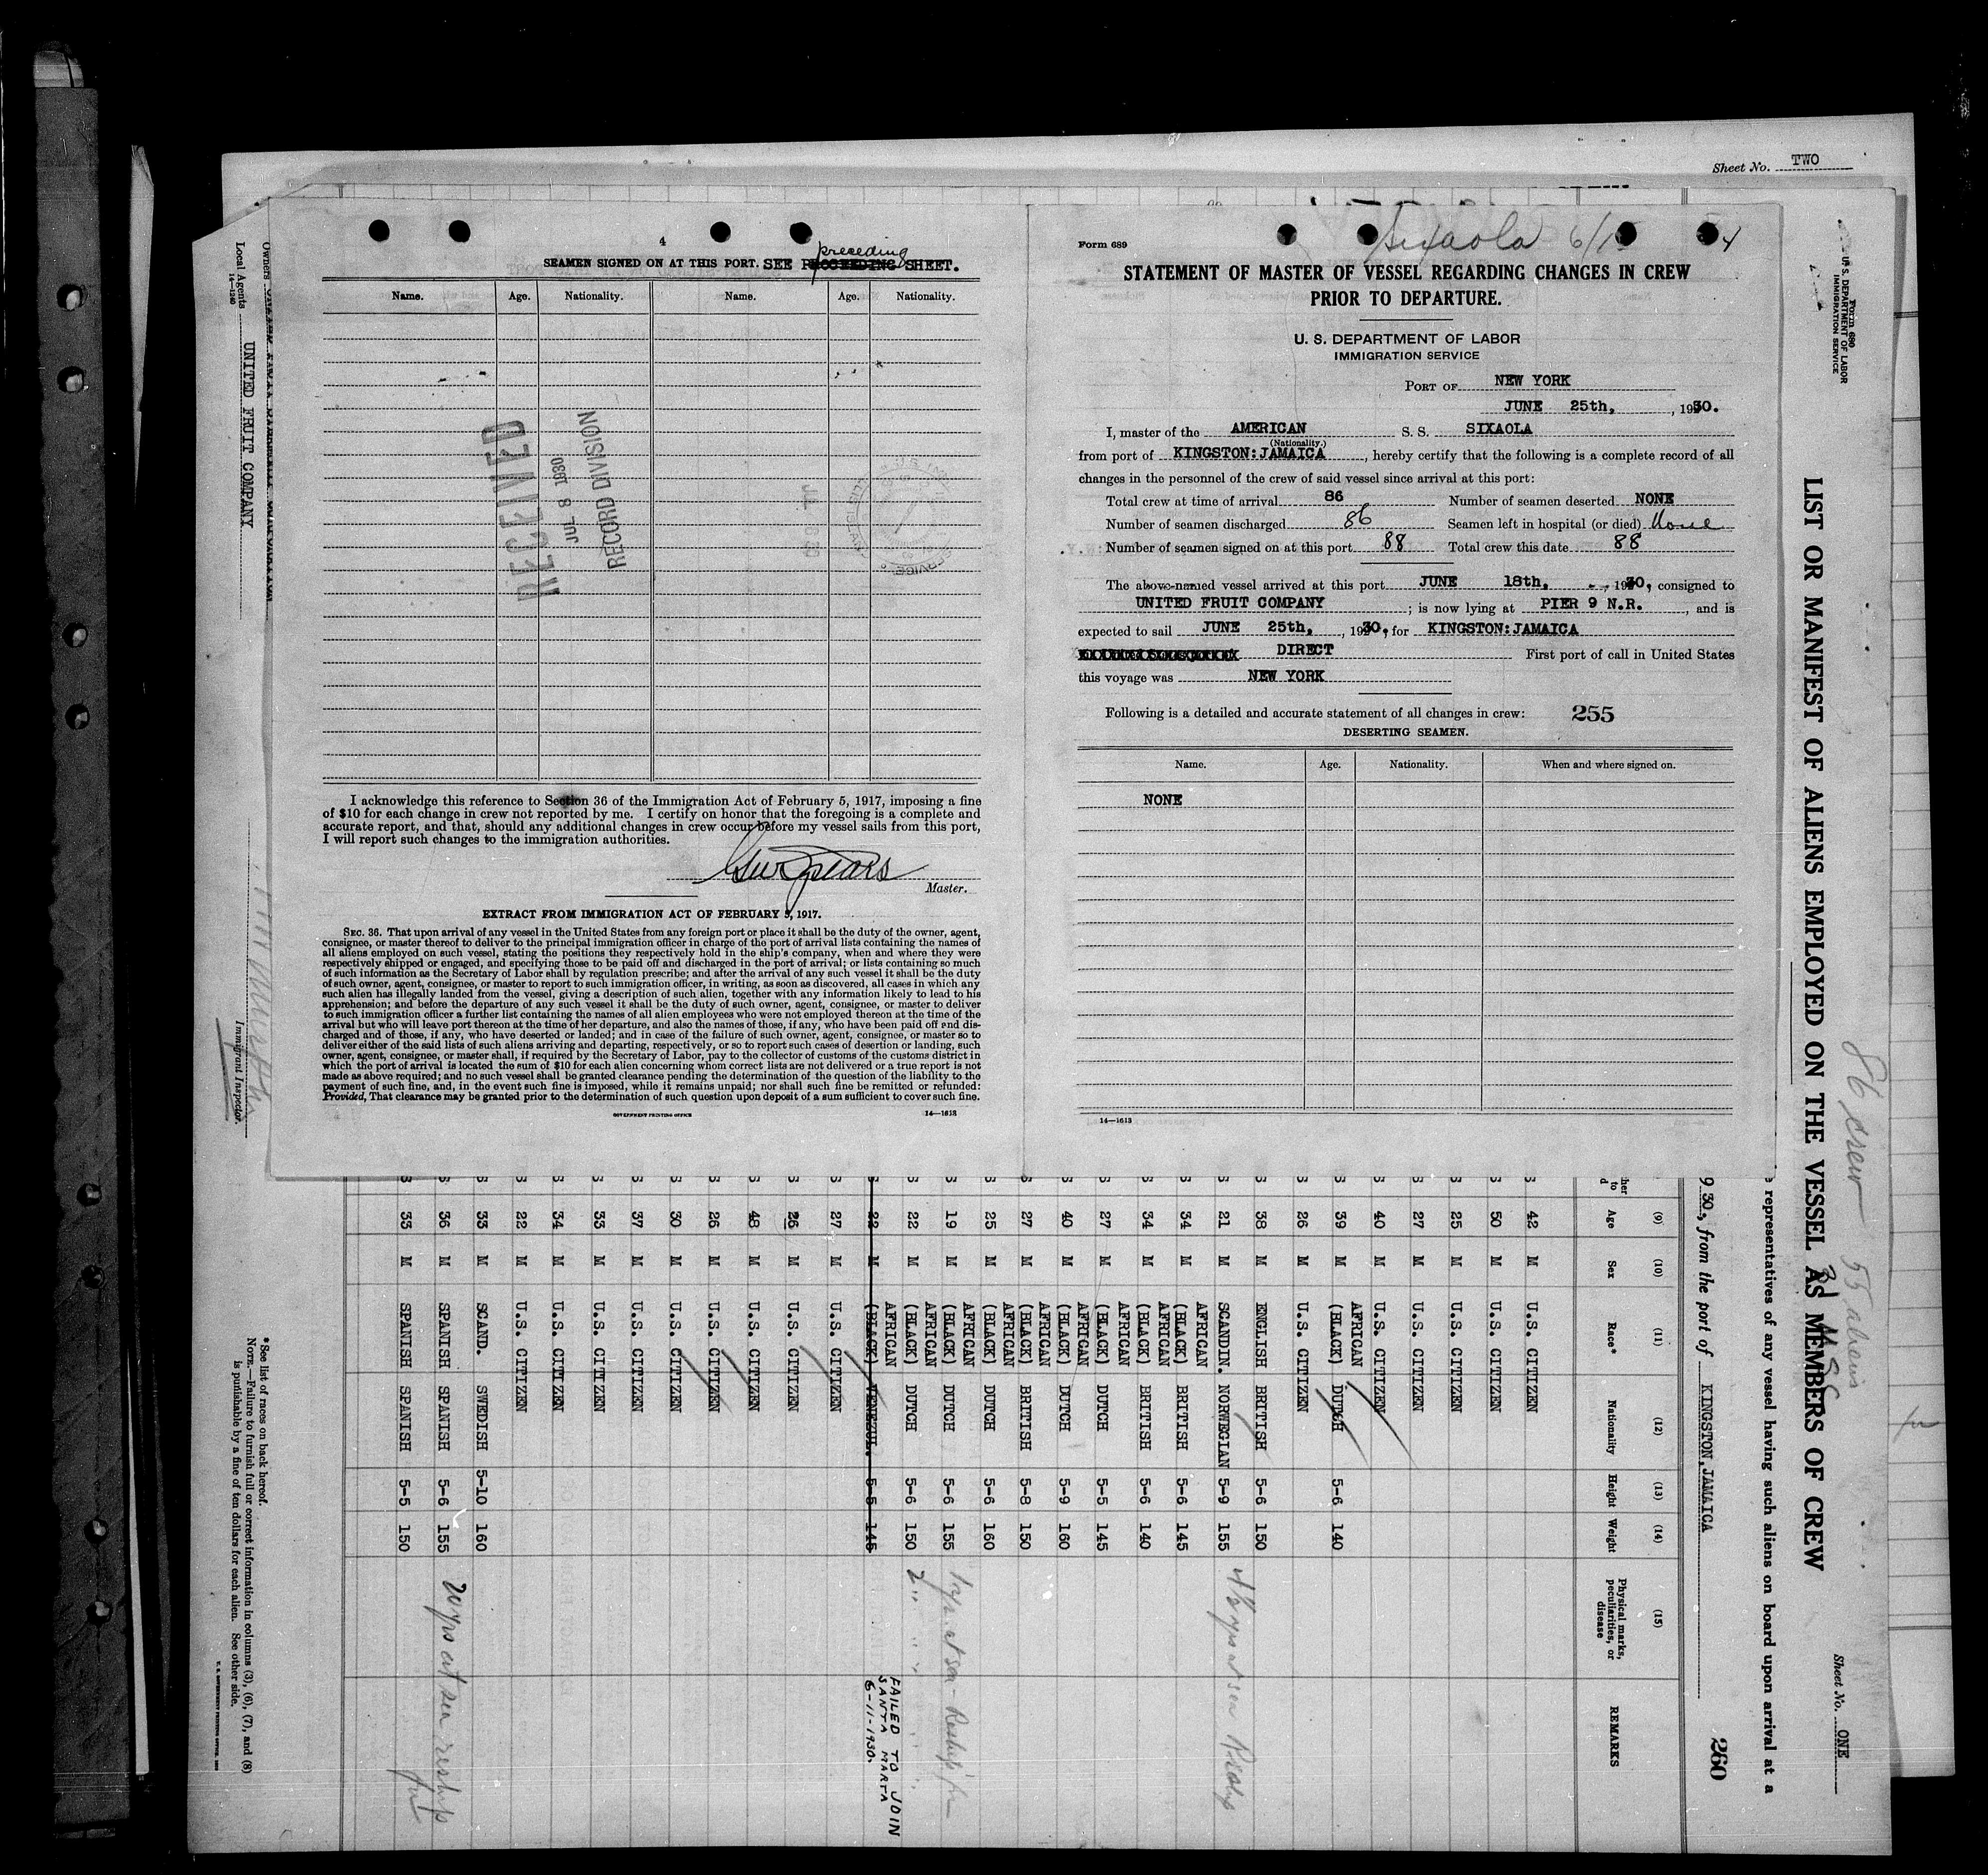 Sheet No. TWO
4
SEAMEN SIGNED ON AT THIS PORT. SEE PROCEEDING preceding SHEET.
Name. Age. Nationality. Name. Age. Nationality.
RECEIVED
JUL 8 1930
RECORD DIVISION
I acknowledge this reference to Section 36 of the Immigration Act of February 5, 1917, imposing a fine
of $10 for each change in crew not reported by me. I certify on honor that the foregoing is a complete and
accurate report, and that, should any additional changes in crew occur before my vessel sails from this port,
I will report such changes to the immigration authorities.
Master.
EXTRACT FROM IMMIGRATION ACT OF FEBRUARY 5, 1917.
SEC. 36. That upon arrival of any vessel in the United States from any foreign port or place it shall be the duty of the owner, agent,
consignee, or master thereof to deliver to the principal immigration officer in charge of the port of arrival lists containing the names of
all aliens employed on such vessel, stating the positions they respectively hold in the ship's company, when and where they were
respectively shipped or engaged, and specifying those to be paid off and discharged in the port of arrival; or lists containing so much
of such information as the Secretary of Labor shall by regulation prescribe; and after the arrival of any such vessel it shall be the duty
of such owner, agent, consignee, or master to report to such immigration officer, in writing, as soon as discovered, all cases in which any
such alien has illegally landed from the vessel, giving a description of such alien, together with any information likely to lead to his
apprehension; and before the departure of any such vessel it shall be the duty of such owner, agent, consignee, or master to deliver
to such immigration officer a further list containing the names of all alien employees who were not employed thereon at the time of the
arrival but who will leave port thereon at the time of her departure, and also the names of those, if any, who have been paid off and dis-
charged and of those, if any, who have deserted or landed; and in case of the failure of such owner, agent, consignee, or master so to
deliver either of the said lists of such aliens arriving and departing, respectively, or so to report such cases of desertion or landing, such
owner, agent, consignee, or master shall, if required by the Secretary of Labor, pay to the collector of customs of the customs district in
which the port of arrival is located the sum of $10 for each alien concerning whom correct lists are not delivered or a true report is not
made as above required; and no such vessel shall be granted clearance pending the determination of the question of the liability to the
payment of such fine, and, in the event such fine is imposed, while it remains unpaid; nor shall such fine be remitted or refunded:
Provided, That clearance may be granted prior to the determination of such question upon deposit of a sum sufficient to cover such fine.
GOVERNMENT PRINTING OFFICE 14—1613
Form 689
Sixaola 6/1
STATEMENT OF MASTER OF VESSEL REGARDING CHANGES IN CREW
PRIOR TO DEPARTURE.
U. S. DEPARTMENT OF LABOR
IMMIGRATION SERVICE
PORT OF NEW YORK
JUNE 25th, , 1930.
I, master of the AMERICAN S. S. SIXAOLA
(Nationality.)
from port of KINGSTON:JAMAICA, hereby certify that the following is a complete record of all
changes in the personnel of the crew of said vessel since arrival at this port:
Total crew at time of arrival 86 Number of seamen deserted NONE
Number of seamen discharged 86 Seamen left in hospital (or died) None
Number of seamen signed on at this port 88 Total crew this date 88
The above-named vessel arrived at this port JUNE 18th, , 1930, consigned to
UNITED FRUIT COMPANY ; is now lying at PIER 9 N.R. , and is
expected to sail JUNE 25th, , 1930, for KINGSTON:JAMAICA
DIRECT First port of call in United States
this voyage was NEW YORK
Following is a detailed and accurate statement of all changes in crew: 255
DESERTING SEAMEN.
Name. Age. Nationality. When and where signed on.
NONE
14—1613
Form 680
U. S. DEPARTMENT OF LABOR
IMMIGRATION SERVICE
Sheet No. ONE
LIST OR MANIFEST OF ALIENS EMPLOYED ON THE VESSEL AS MEMBERS OF CREW
86 crew 55 aliens
representatives of any vessel having such aliens on board upon arrival at a
9 30, from the port of KINGSTON,JAMAICA
260
(9) (10) (11) (12) (13) (14) (15)
Age Sex Race* Nationality Height Weight Physical marks, peculiarities, or disease REMARKS
42 M U.S. CITIZEN
50 M U.S. CITIZEN
25 M U.S. CITIZEN
27 M U.S. CITIZEN
40 M U.S. CITIZEN
39 M AFRICAN (BLACK) DUTCH 5-6 140
26 M U.S. CITIZEN
38 M ENGLISH BRITISH 5-6 150
21 M SCANDIN. NORWEGIAN 5-9 155
34 M AFRICAN (BLACK) BRITISH 5-6 145
34 M AFRICAN (BLACK) BRITISH 5-6 140
27 M AFRICAN (BLACK) DUTCH 5-5 145
40 M AFRICAN (BLACK) DUTCH 5-9 160
27 M AFRICAN (BLACK) BRITISH 5-8 150
25 M AFRICAN (BLACK) DUTCH 5-6 160
19 M AFRICAN (BLACK) DUTCH 5-6 155
22 M AFRICAN (BLACK) DUTCH 5-6 150
22 M AFRICAN (BLACK) VENEZUL. 5-5 145 FAILED TO JOIN SANTA MARTA 6-11-1930.
27 M U.S. CITIZEN
26 M U.S. CITIZEN
48 M U.S. CITIZEN
26 M U.S. CITIZEN
30 M U.S. CITIZEN
37 M U.S. CITIZEN
33 M U.S. CITIZEN
34 M U.S. CITIZEN
22 M U.S. CITIZEN
33 M SCAND. SWEDISH 5-10 160
36 M SPANISH SPANISH 5-6 155 yrs at sea reship
33 M SPANISH SPANISH 5-5 150
Local Agents UNITED FRUIT COMPANY
14—1240
Owners
Immigrant Inspector.
*See list of races on back hereof.
NOTE.—Failure to furnish full or correct information in columns (3), (6), (7), and (8)
is punishable by a fine of ten dollars for each alien. See other side.